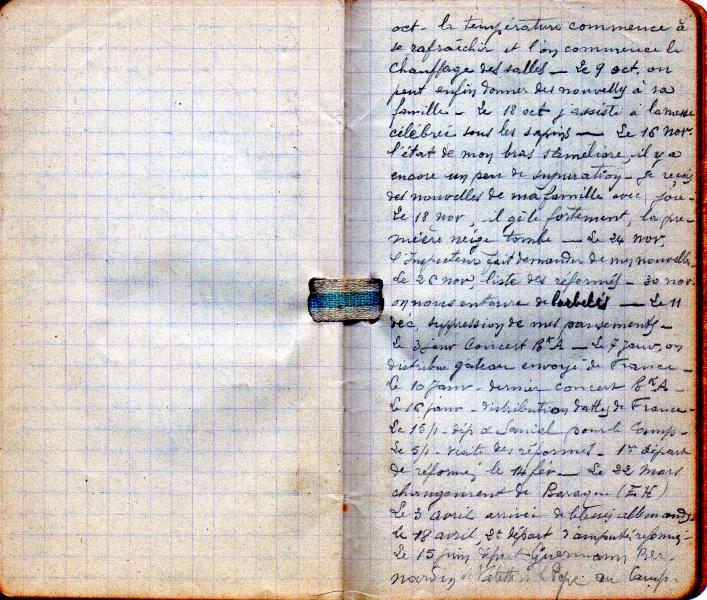 oct - la température commence à
se rafraîchir et l'on commence le
chauffage des salles — Le 9 oct. on
peut enfin donner des nouvelles à sa
famille - Le 18 oct j'assiste à la messe
célébrée sous les sapins — Le 16 nov.
l'état de mon bras s'améliore, il y a
encore un peu de supuration - Je reçois
des nouvelles de ma famille avec joie -
Le 18 nov, il gèle fortement, la pre
mière neige tombe — Le 24 nov.
l'Inspecteur fait demander de mes nouvelles
Le 26 nov, liste des réformés - 30 nov
on nous entoure de barbelés — Le 11
déc, suppression de mes pansements -
Le 3 janv Concert Bt A - Le 7 janv, on
distribue gâteau envoyé de France -
Le 10 janv - dernier concert Bt A -
Le 16 janv - distribution dattes de France -
Le 15/1 - dép de pour le Camp -
Le 5/1 - visite des réformés - 1er départ
de réformés le 14 fév — Le 22 Mars
changement de Baraque
Le 3 avril arrivée de blessés allemands
le 18 avril, 2e départ d'amputés réformés -
Le 15 juin départ Guermann Ber
nardin et au Camp